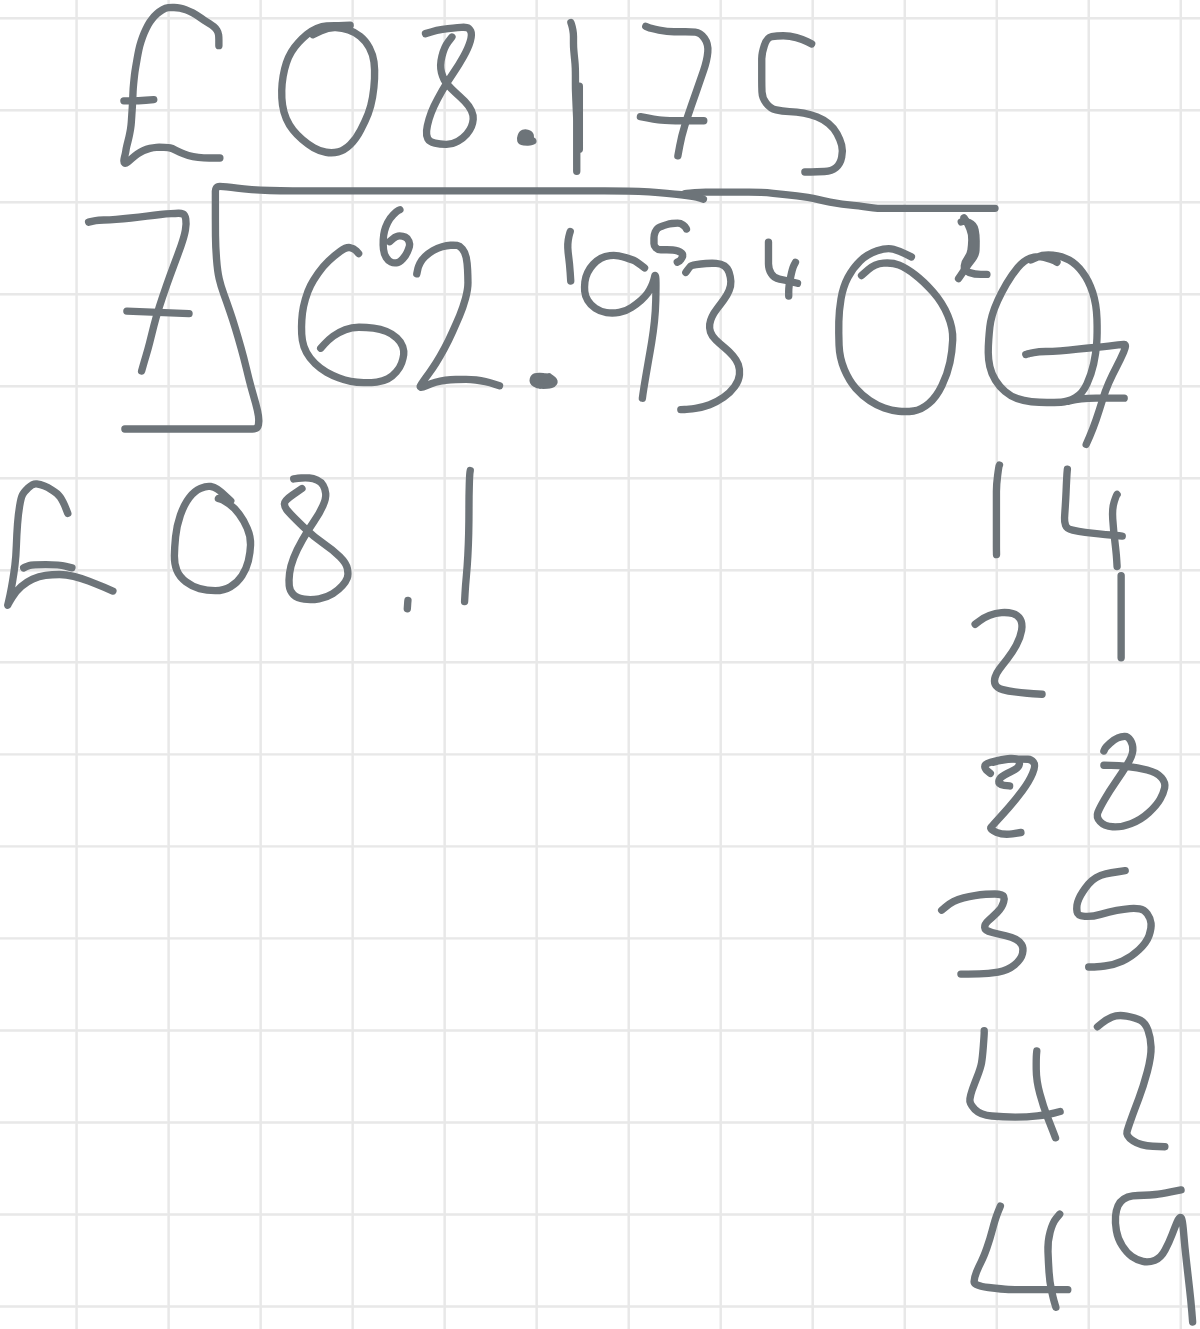 £08.175
7 6⁶2.¹9⁵3⁴0²0
7
£08.1
14
21
28
35
42
49